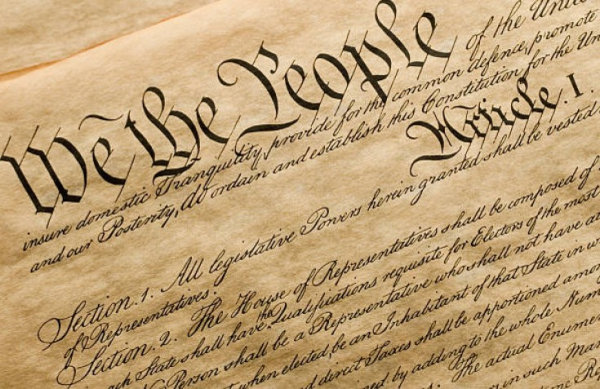 We the People of the Unite
insure domestic Tranquility, provide for the common defence, promote
and our Posterity, do ordain and establish this Constitution for the Un
Article. I.
Section. 1. All legislative Powers herein granted shall be vested
of Representatives.
Section. 2. The House of Representatives shall be composed of
ach State shall have the Qualifications requisite for Electors of the most
Person shall be a Representative who shall not have at
when elected, be an Inhabitant of that State in w
and direct Taxes shall be apportioned amon
by adding to the whole Num
The actual Enumer
in such Man